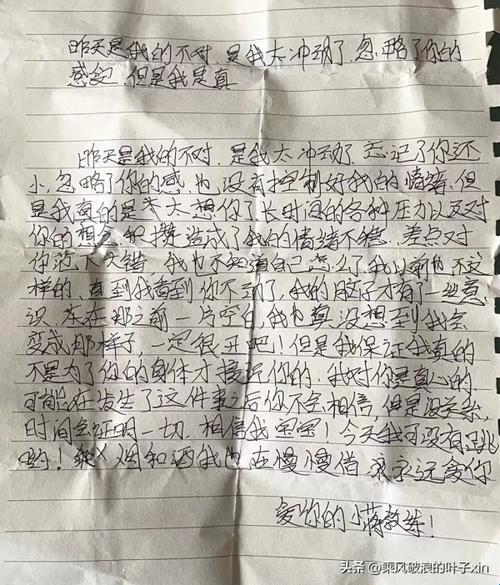 昨天是我的不对,是我太冲动了,忽略了你的
感记,但是我是真
昨天是我的不对,是我太冲动了,忘记了你还
小,忽略了你的感,也没有控制好我的情绪,但
是我真的是太想你了,长时间的各种压力以及对
你的想念积攒造成了我的情绪不稳,差点对
你犯了大错,我也不知道自己怎么了,我以前也不这
样的,直到我看到你不动了,我的脑子才有了一丝意
识,在那之前一片空白,我也真没想到我会
变成那样子,一定很丑吧!但是我保证我真的
不是为了你的身体才接近你的,我对你是真心的,
可能在发生了这件事之后你不会相信,但是没关系,
时间会证明一切,相信我宝宝!今天我可没有
哟!烟和酒我也在慢慢借,永远爱你
爱你的小蒋教练!
头条@乘风破浪的叶子xin